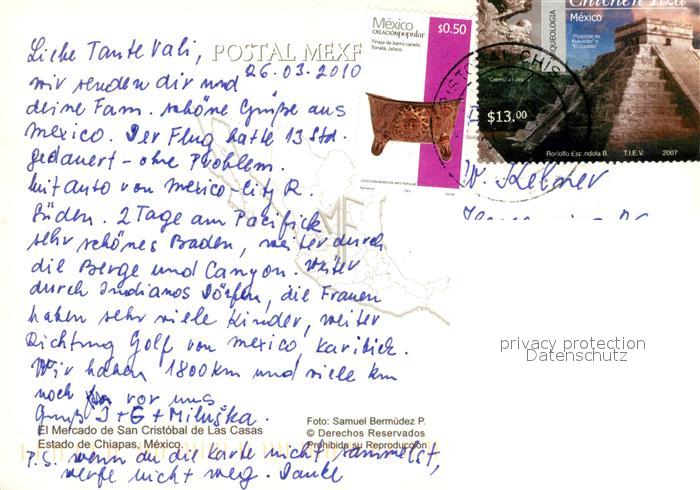 Liebe Tante Vali,
POSTAL MEX
26.03.2010
wir senden dir und
deine Fam. schöne Grüße aus
Mexico. Der Flug hatte 13 Std.
gedauert - ohne Problem.
Mit auto von Mexico-City R.
Süden. 2 Tage am Pacifick
sehr schönes Baden, weiter durch
die Berge und Canyon. Weiter
durch Indianos Dörfer, die Frauen
haben sehr viele Kinder, weiter
Richtung Golf von Mexico, Karibick.
Wir haben 1800km und viele km
noch vor uns
Gruß J+G+Miluška.
El Mercado de San Cristóbal de Las Casas
Estado de Chiapas, México.
P.S. wenn du die Karte nicht sammelst,
werfe nicht weg. Danke
Foto: Samuel Bermúdez P.
© Derechos Reservados
Prohibida su Reproducción
México $0.50
CREACIÓN popular
Tinaja de barro canelo.
Tonalá, Jalisco.
Chichén Itzá
México
"Pirámide de
Kukulcán" o
"El Castillo"
ARQUEOLOGIA
$13.00
Rodolfo Espíndola B. T.I.E.V. 2007
W. Kelmer
privacy protection
Datenschutz